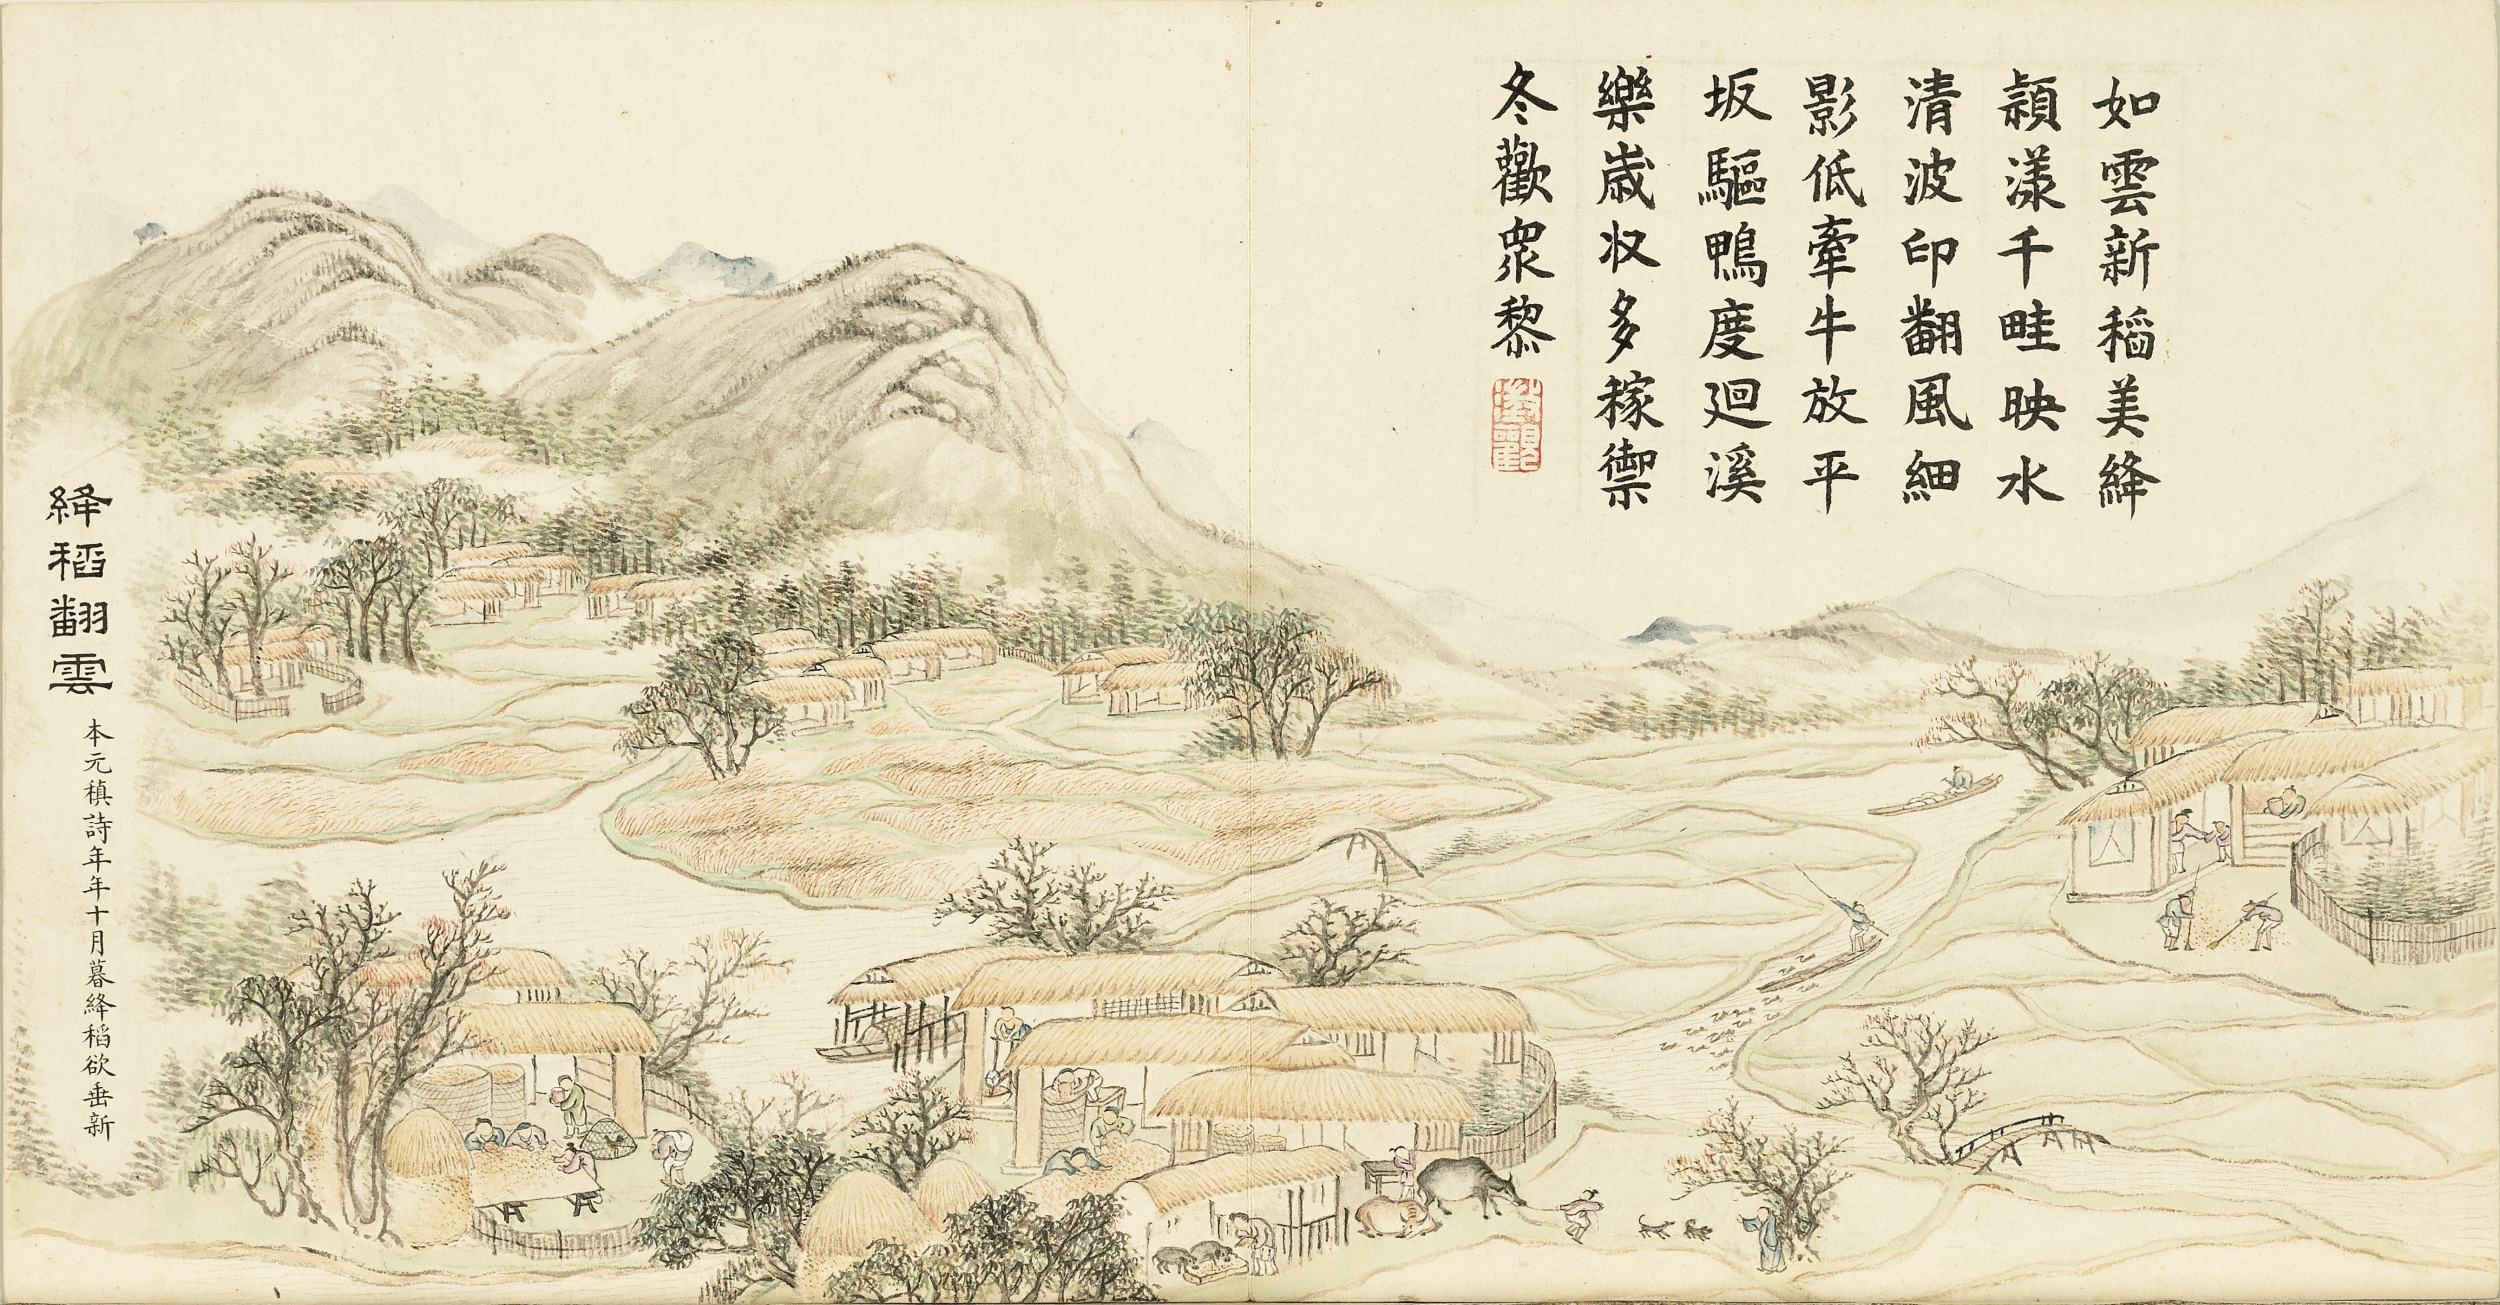 如雲新稻美絳
穎漾千畦映水
清波印翻風細
影低牽牛放平
坂驅鴨度迴溪
樂歲収多稼禦
冬歡衆黎
絳稻翻雲
本元稹詩年年十月暮絳稻欲垂新